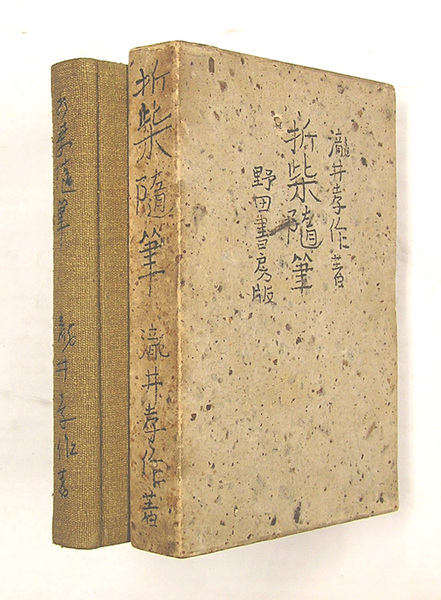 瀧井孝作著
折柴隨筆
野田書房版
折柴隨筆 瀧井孝作著
折柴隨筆 瀧井孝作著